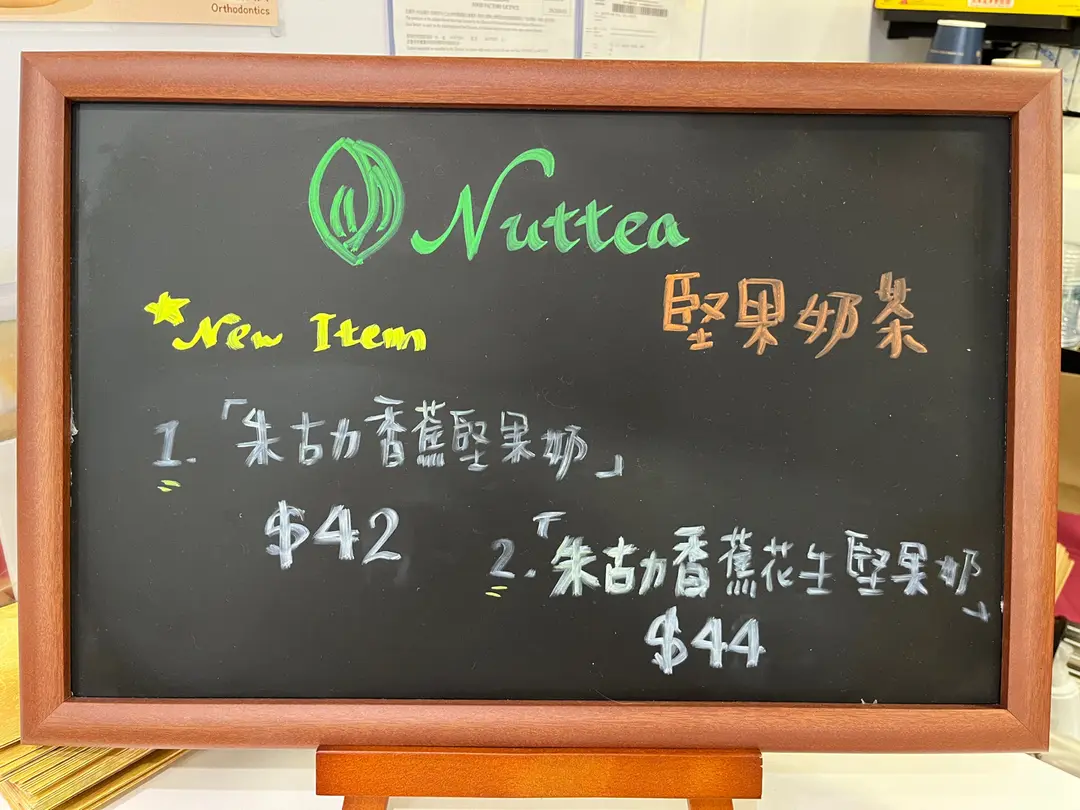 Orthodontics
FOOD FACTORY LICENCE
Nuttea
堅果奶茶
New Item
1. 「朱古力香蕉堅果奶」
$42
2. 「朱古力香蕉花生堅果奶」
$44